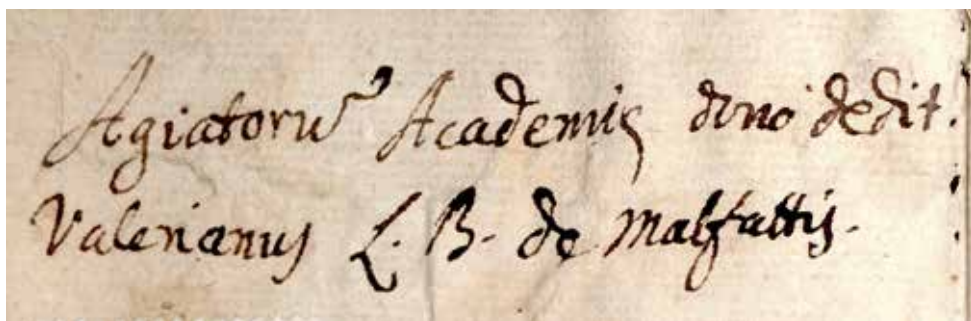 Agiatorũ Academię dono dedit.
Valerianus L. B. de Malfattis.